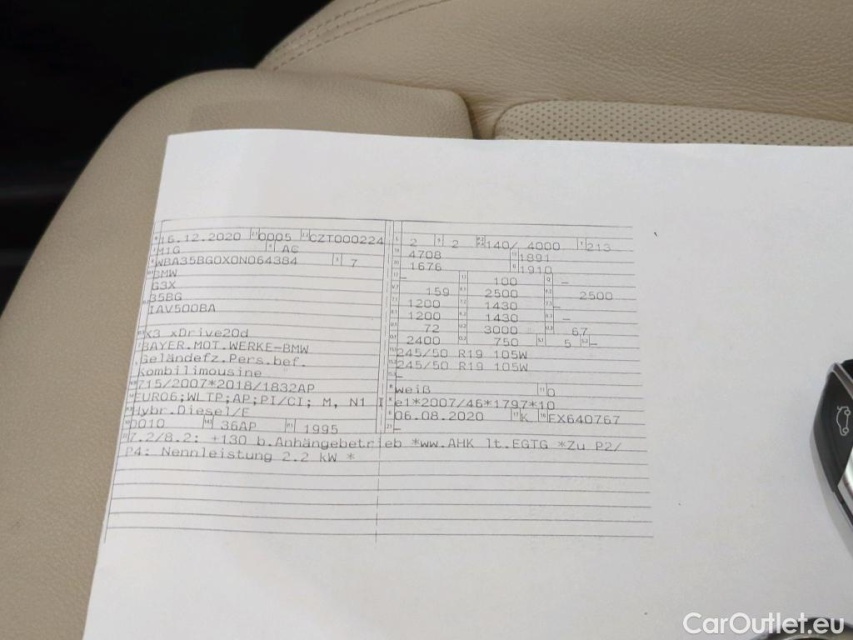 16.12.2020 0005 CZT000224
M1G AC
WBA35BG0X0N064384 7
BMW
G3X
35BG
IAV500BA
X3 xDrive20d
BAYER.MOT.WERKE-BMW
Geländefz.Pers.bef.
Kombilimousine
715/2007*2018/1832AP
EURO6;WLTP;AP;PI/CI; M, N1 I
Hybr.Diesel/E
0010 36AP 1995
2 2 140/ 4000 213
4708 1891
1676 1910
– 100 –
159 2500 2500
1200 1430 –
1200 1430 –
72 3000 67
2400 750 5 –
245/50 R19 105W
245/50 R19 105W
–
weiß 0
e1*2007/46*1797*10
06.08.2020 K FX640767
7.2/8.2: +130 b.Anhängebetrieb *ww.AHK lt.EGTG *Zu P2/
P4: Nennleistung 2.2 kW *
CarOutlet.eu